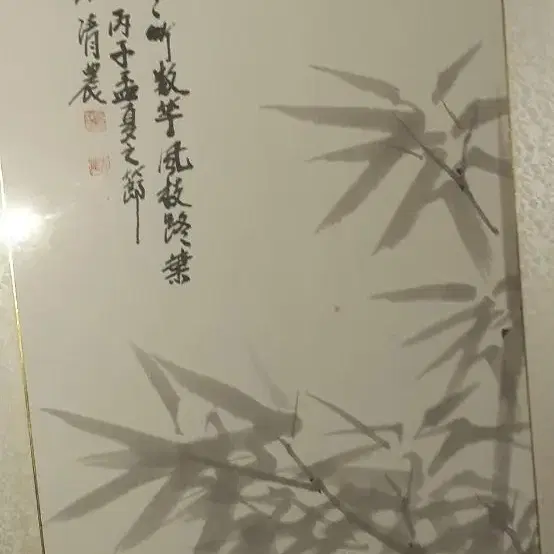 竹數竿風枝露葉
丙子孟夏之節
清農